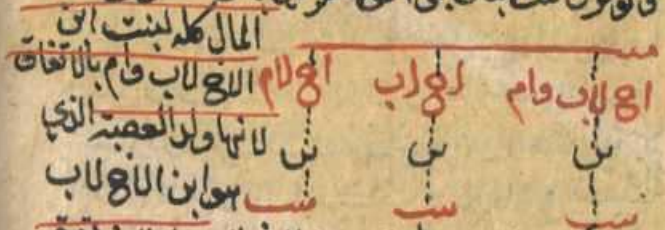 المال كله لبنت ابن
الاخ لاب وام بالاتفاق
لانها ولد العصبة الذي
هو ابن الاخ لاب
اخ لاب وام اخ لاب اخ لام
بن بن بن
بنت بنت بنت